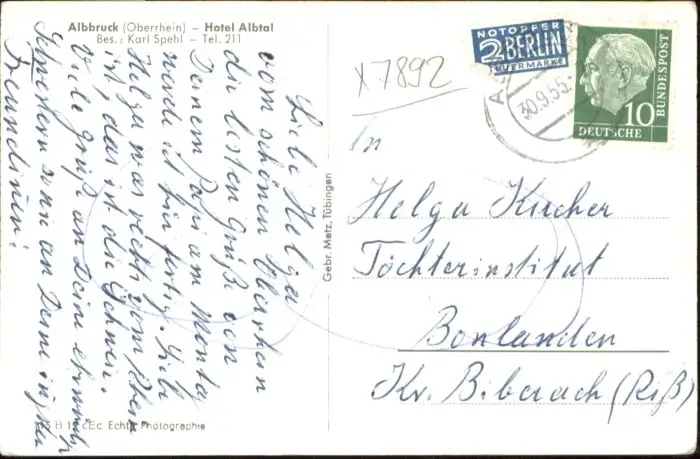 Albbruck (Oberrhein) – Hotel Albtal
Bes.: Karl Spehl – Tel. 211
Liebe Helga
vom schönen Oberrhein
die besten Grüße von
Deinem Papi am Montag
werde ich hier fertig. Liebe
Helga was rechts vom Rhein
ist, das ist die Schweiz.
Viele Grüße an Deine
Schwestern sowie an Deine
Freundinnen!
15 B 12 cEc Echte Photographie
Gebr. Metz, Tübingen
x7892
NOTOPFER
2 BERLIN
STEUERMARKE
30.9.55.
10
DEUTSCHE
BUNDESPOST
In
Helga Kircher
Töchterinstitut
Bonlanden
Kr. Biberach (Riß)